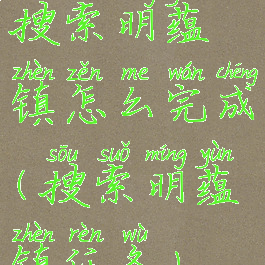 搜索明蕴
zhèn zěn me wán chéng
镇怎么完成
sōu suǒ míng yùn
(搜索明蕴
zhèn rèn wù
镇任务)